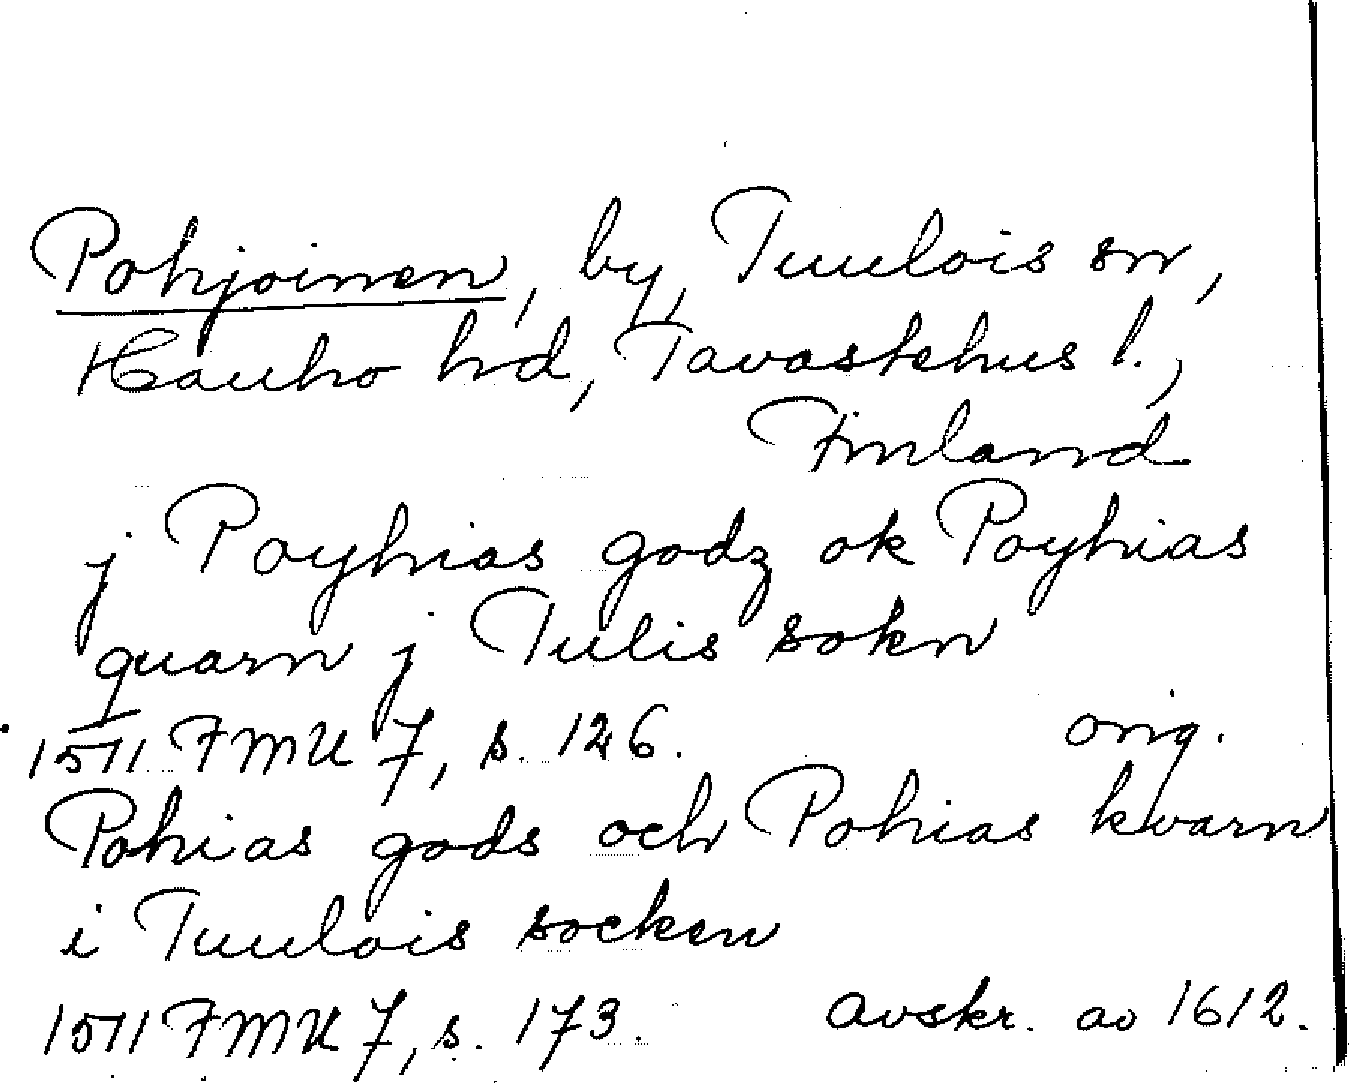 Pohjoinen, by, Tuulois sn,
Hauho hd, Tavastehus l.,
Finland
j Poyhias godz ok Poyhias
quarn j Tulis sokn
1511 FMU 7, s. 126. orig.
Pohias gods och Pohias kvarn
i Tuulois socken
1511 FMU 7, s. 173. Avskr. ao 1612.